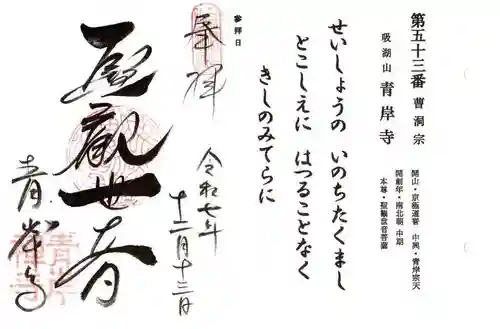 第五十三番 曹洞宗
吸湖山 青岸寺
開山・京極道誉 中興・青岸宗天
開創年・南北朝 中期
本尊・聖観世音菩薩
せいしょうの いのちたくまし
とこしえに はつることなく
きしのみてらに
参拝日
奉拝
令和七年
十二月十三日
聖観世音
青岸寺